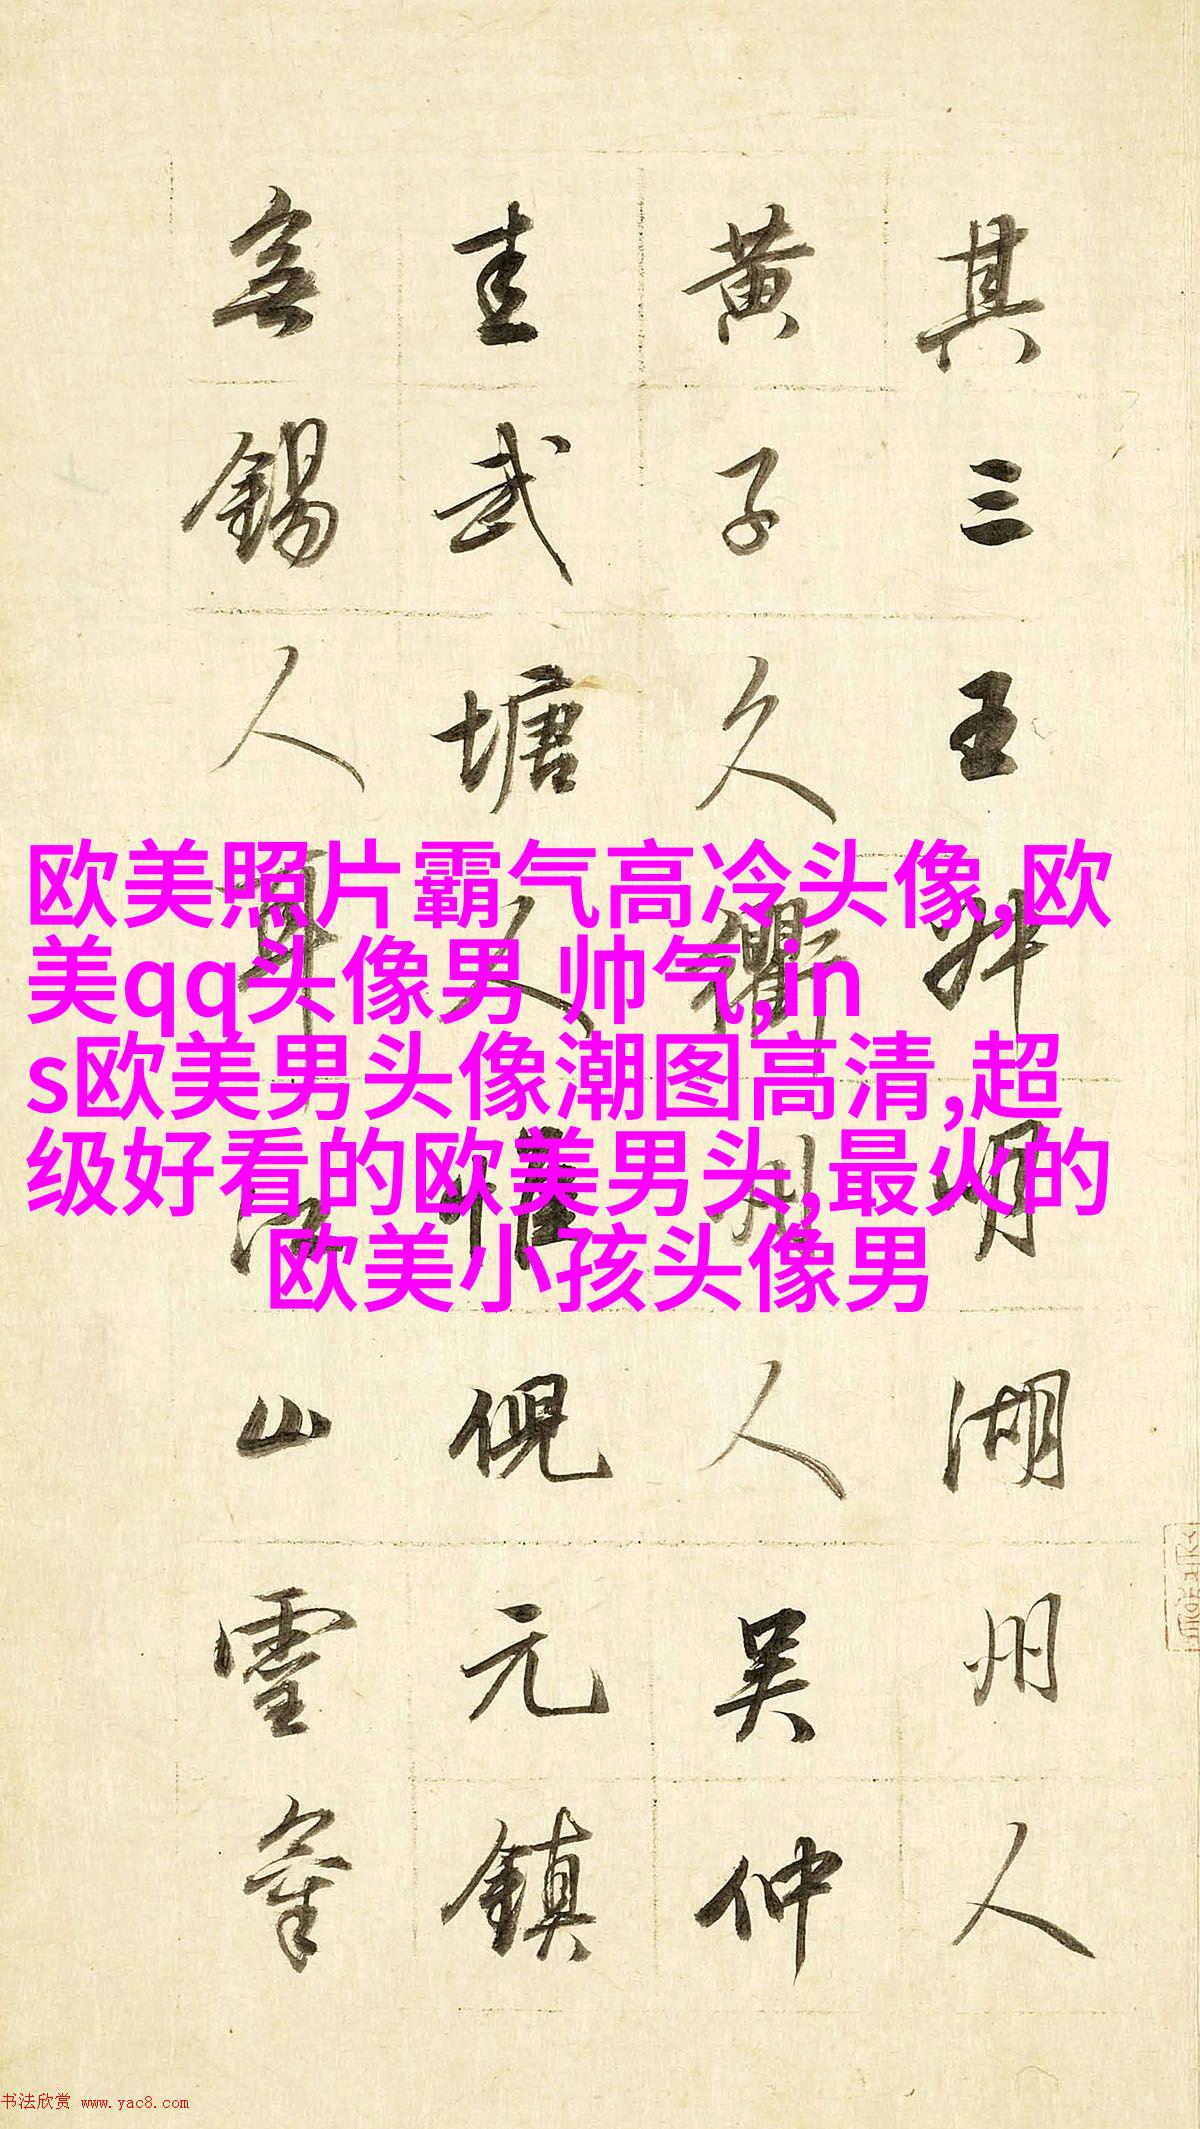 欧美照片霸气高冷头像,欧
美qq头像男 帅气,in
s欧美男头像潮图高清,超
级好看的欧美男头,最火的
欧美小孩头像男
其三王叔明湖州人
黄子久衢州人吴仲
圭武塘人惟倪元鎮
無錫人耳江山靈氣
书法欣赏 www.yac8.com